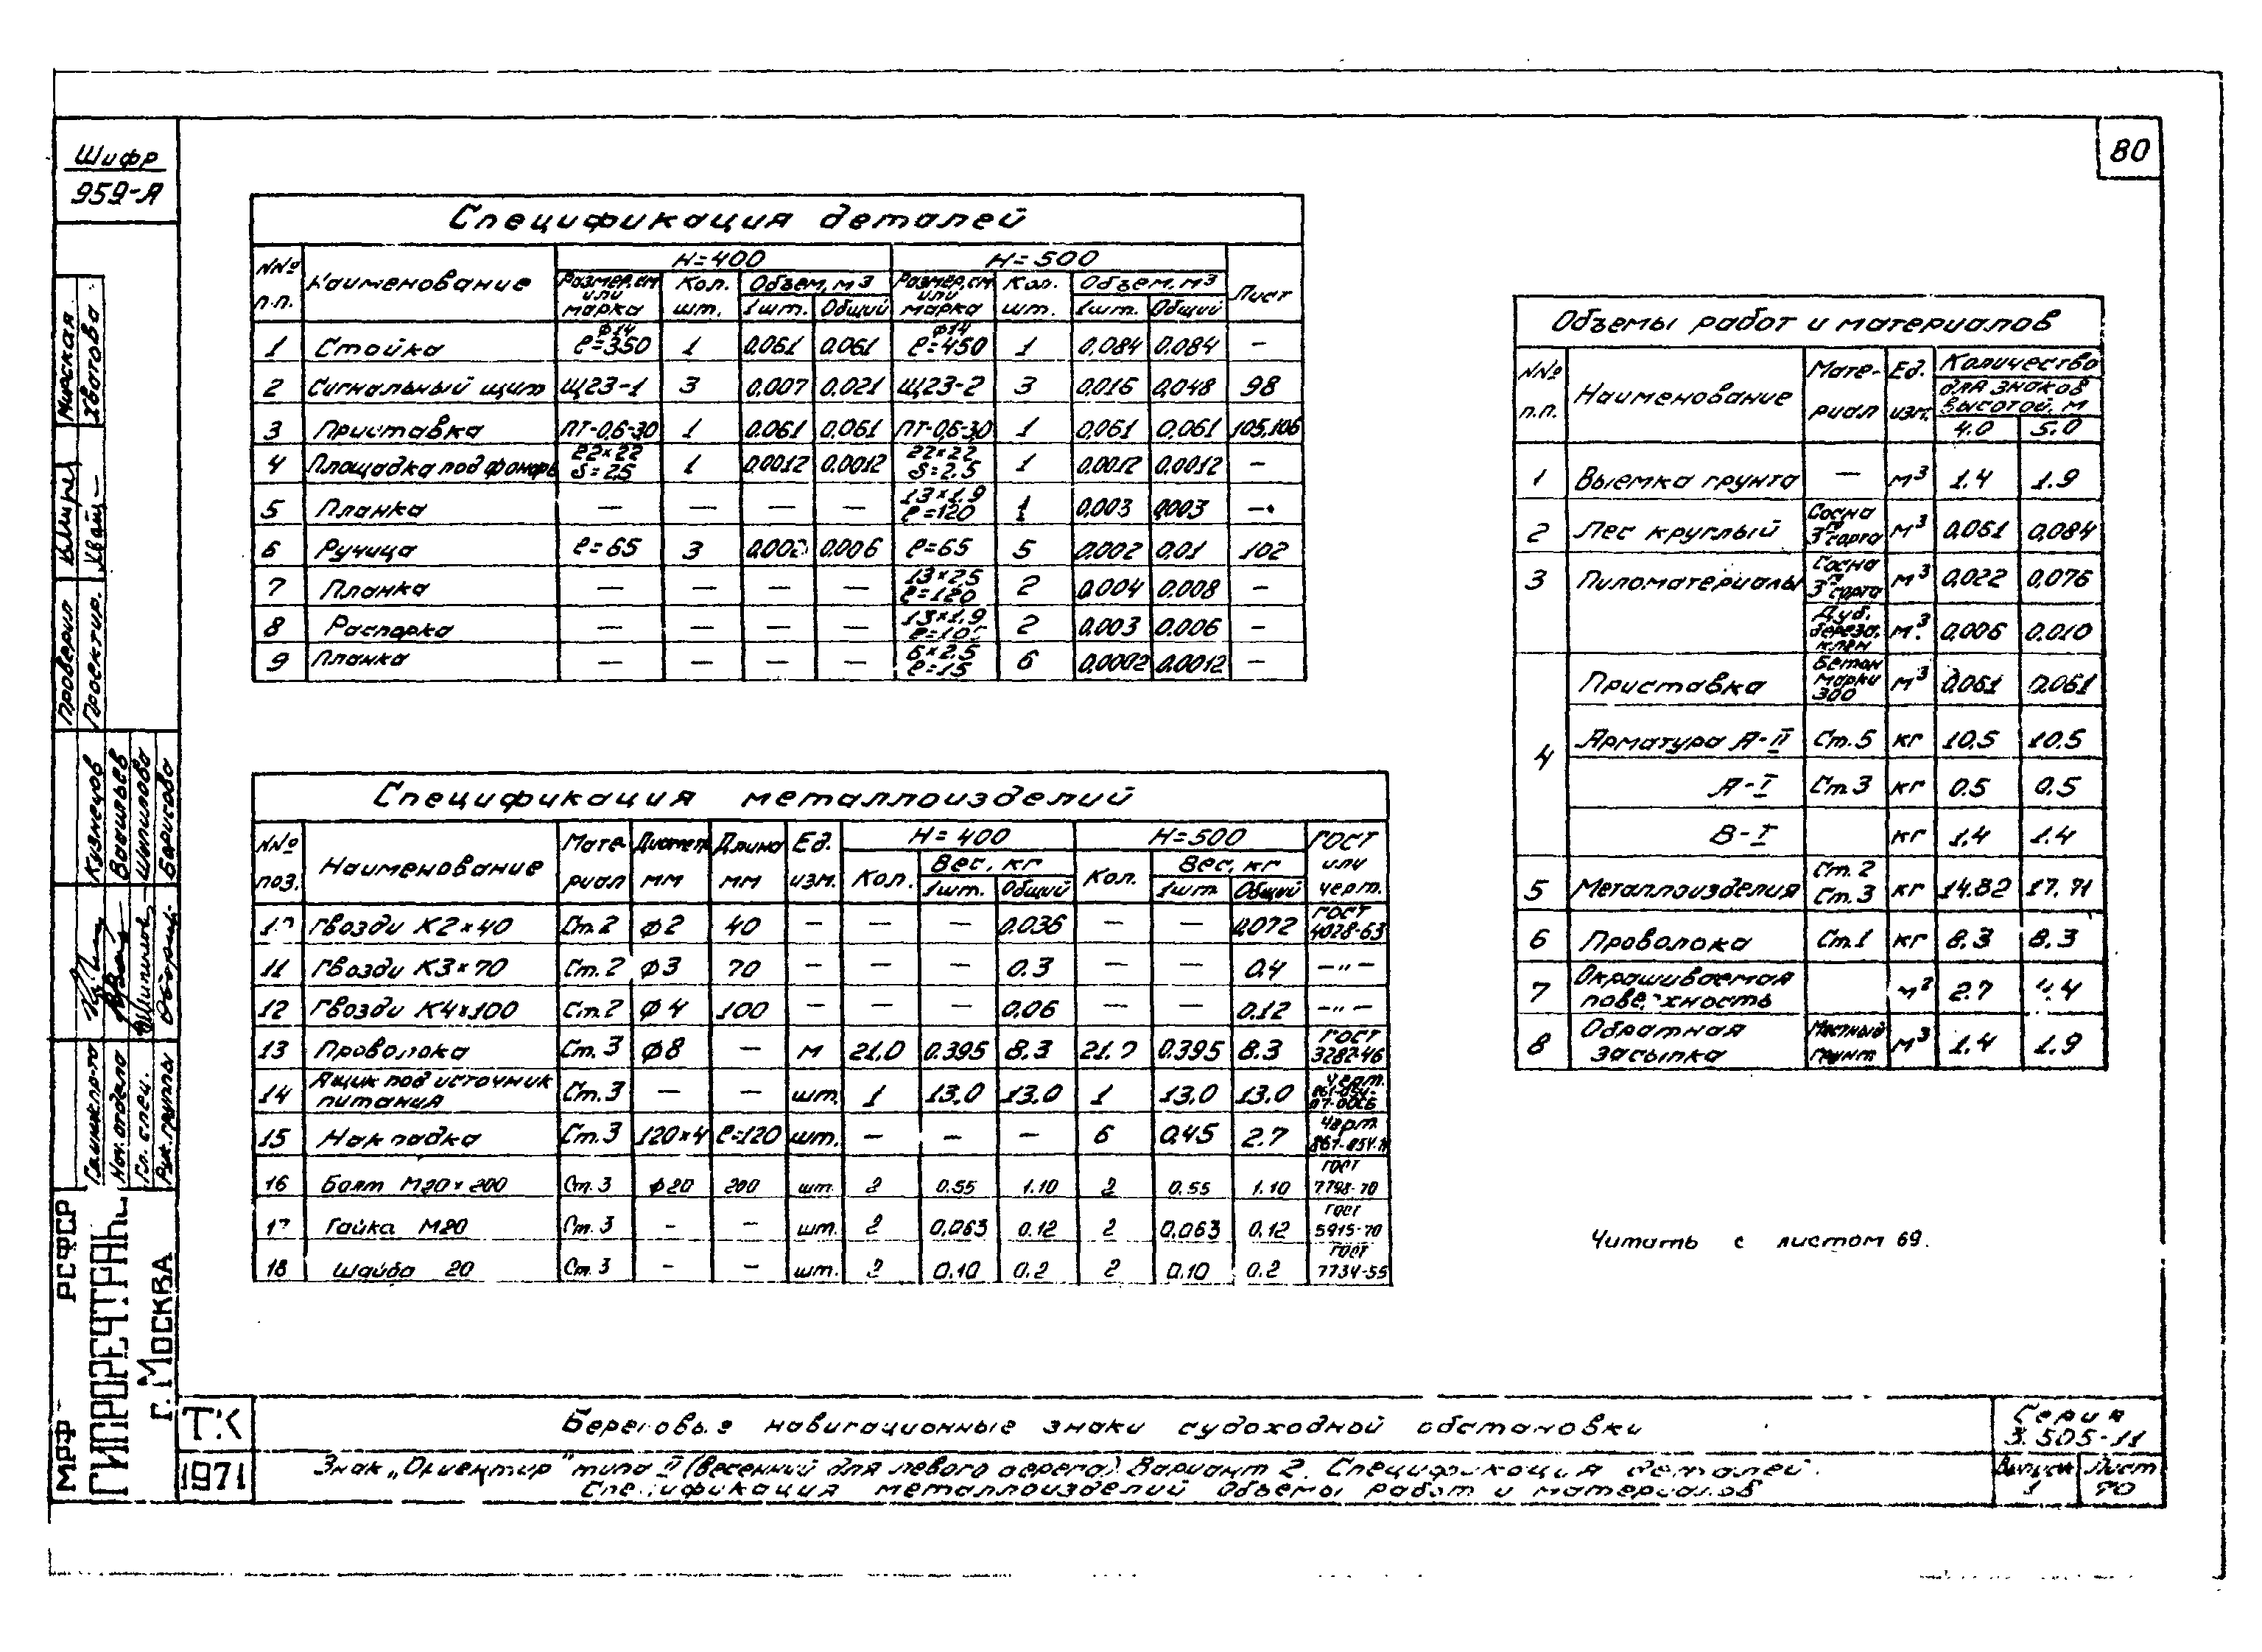 Шифр
959-А
80
Спецификация деталей
NNº п.п. Наименование H=400 H=500 Лист
Размер, см или марка Кол. шт. Объем, м3 1шт. Общий Размер, см или марка Кол. шт. Объем, м3 1шт. Общий
1 Стойка ф14 ℓ=350 1 0,061 0,061 ф14 ℓ=450 1 0,084 0,084 —
2 Сигнальный щит Щ23-1 3 0,007 0,021 Щ23-2 3 0,016 0,048 98
3 Приставка ПТ-0,6-3,0 1 0.061 0,061 ПТ-0,6-3,0 1 0,061 0,061 105,106
4 Площадка под фонарь 22×22 S=2,5 1 0,0012 0,0012 22×22 S=2,5 1 0,0012 0,0012 —
5 Планка — — — — 13×1,9 ℓ=120 1 0,003 0,003 —
6 Ручица ℓ=65 3 0,002 0,006 ℓ=65 5 0,002 0,01 102
7 Планка — — — — 13×2,5 ℓ=120 2 0,004 0,008 —
8 Распорка — — — — 13×1,9 2 0,003 0.006 —
9 Планка — — — — 6×2,5 ℓ=15 6 0,0002 0,0012 —
Спецификация металлоизделий
NNº поз. Наименование Мате-риал Диаметр мм Длина мм Ед. изм. H=400 H=500 ГОСТ или черт.
Кол. Вес, кг 1шт. Общий Кол. Вес, кг 1шт. Общий
10 Гвозди К2×40 Ст.2 ф2 40 — — — 0.036 — — 0,072 ГОСТ 4028-63
11 Гвозди К3×70 Ст.2 ф3 70 — — — 0.3 — — 0,4 —"—
12 Гвозди К4×100 Ст.2 ф4 100 — — — 0,06 — — 0.12 —"—
13 Проволока Ст.3 ф8 — м 21,0 0.395 8.3 21.0 0.395 8.3 ГОСТ 3282-46
14 Ящик под источник питания Ст.3 — — шт. 1 13,0 13,0 1 13,0 13,0 черт.
15 Накладка Ст.3 120×4 ℓ=120 шт. — — — 6 0,45 2.7 Черт.
16 Болт М20×200 Ст.3 ф20 200 шт. 2 0.55 1.10 2 0.55 1.10 ГОСТ 7798-70
17 Гайка М20 Ст.3 — — шт. 2 0,063 0.12 2 0,063 0,12 ГОСТ 5915-70
18 Шайба 20 Ст.3 — — шт. 2 0.10 0.2 2 0.10 0.2 ГОСТ 7734-55
Объемы работ и материалов
NNº п.п. Наименование Мате-риал Ед. изм. Количество для знаков высотой, м 4.0 5.0
1 Выемка грунта — м3 1.4 1.9
2 Лес круглый Сосна 3го сорта м3 0,061 0,084
3 Пиломатериалы Сосна 3го сорта м3 0,022 0,076
Дуб, береза, клен м3 0,006 0.010
4 Приставка Бетон марки 300 м3 0,061 0.061
Арматура А-II Ст.5 кг 10,5 10,5
А-I Ст.3 кг 0.5 0,5
В-I кг 1,4 1.4
5 Металлоизделия Ст.2 Ст.3 кг 14.82 17.71
6 Проволока Ст.1 кг 8.3 8.3
7 Окрашиваемая поверхность м2 2.7 4.4
8 Обратная засыпка Местный грунт м3 1.4 1.9
Читать с листом 69.
Мирская
Хватова
Проверил
Проектир.
Кузнецов
Васильев
Шипилова
Борисова
Гл.инж.пр-та
Нач. отдела
Гл. спец.
Рук. группы
МРФ РСФСР
ГИПРОРЕЧТРАНС
г. Москва
ТК
1971
Береговые навигационные знаки судоходной обстановки
Знак „Ориентир" типа II (весенний для левого берега). Вариант 2. Спецификация деталей.
Спецификация металлоизделий Объемы работ и материалов
Серия
3.505-11
Выпуск 1
Лист 70